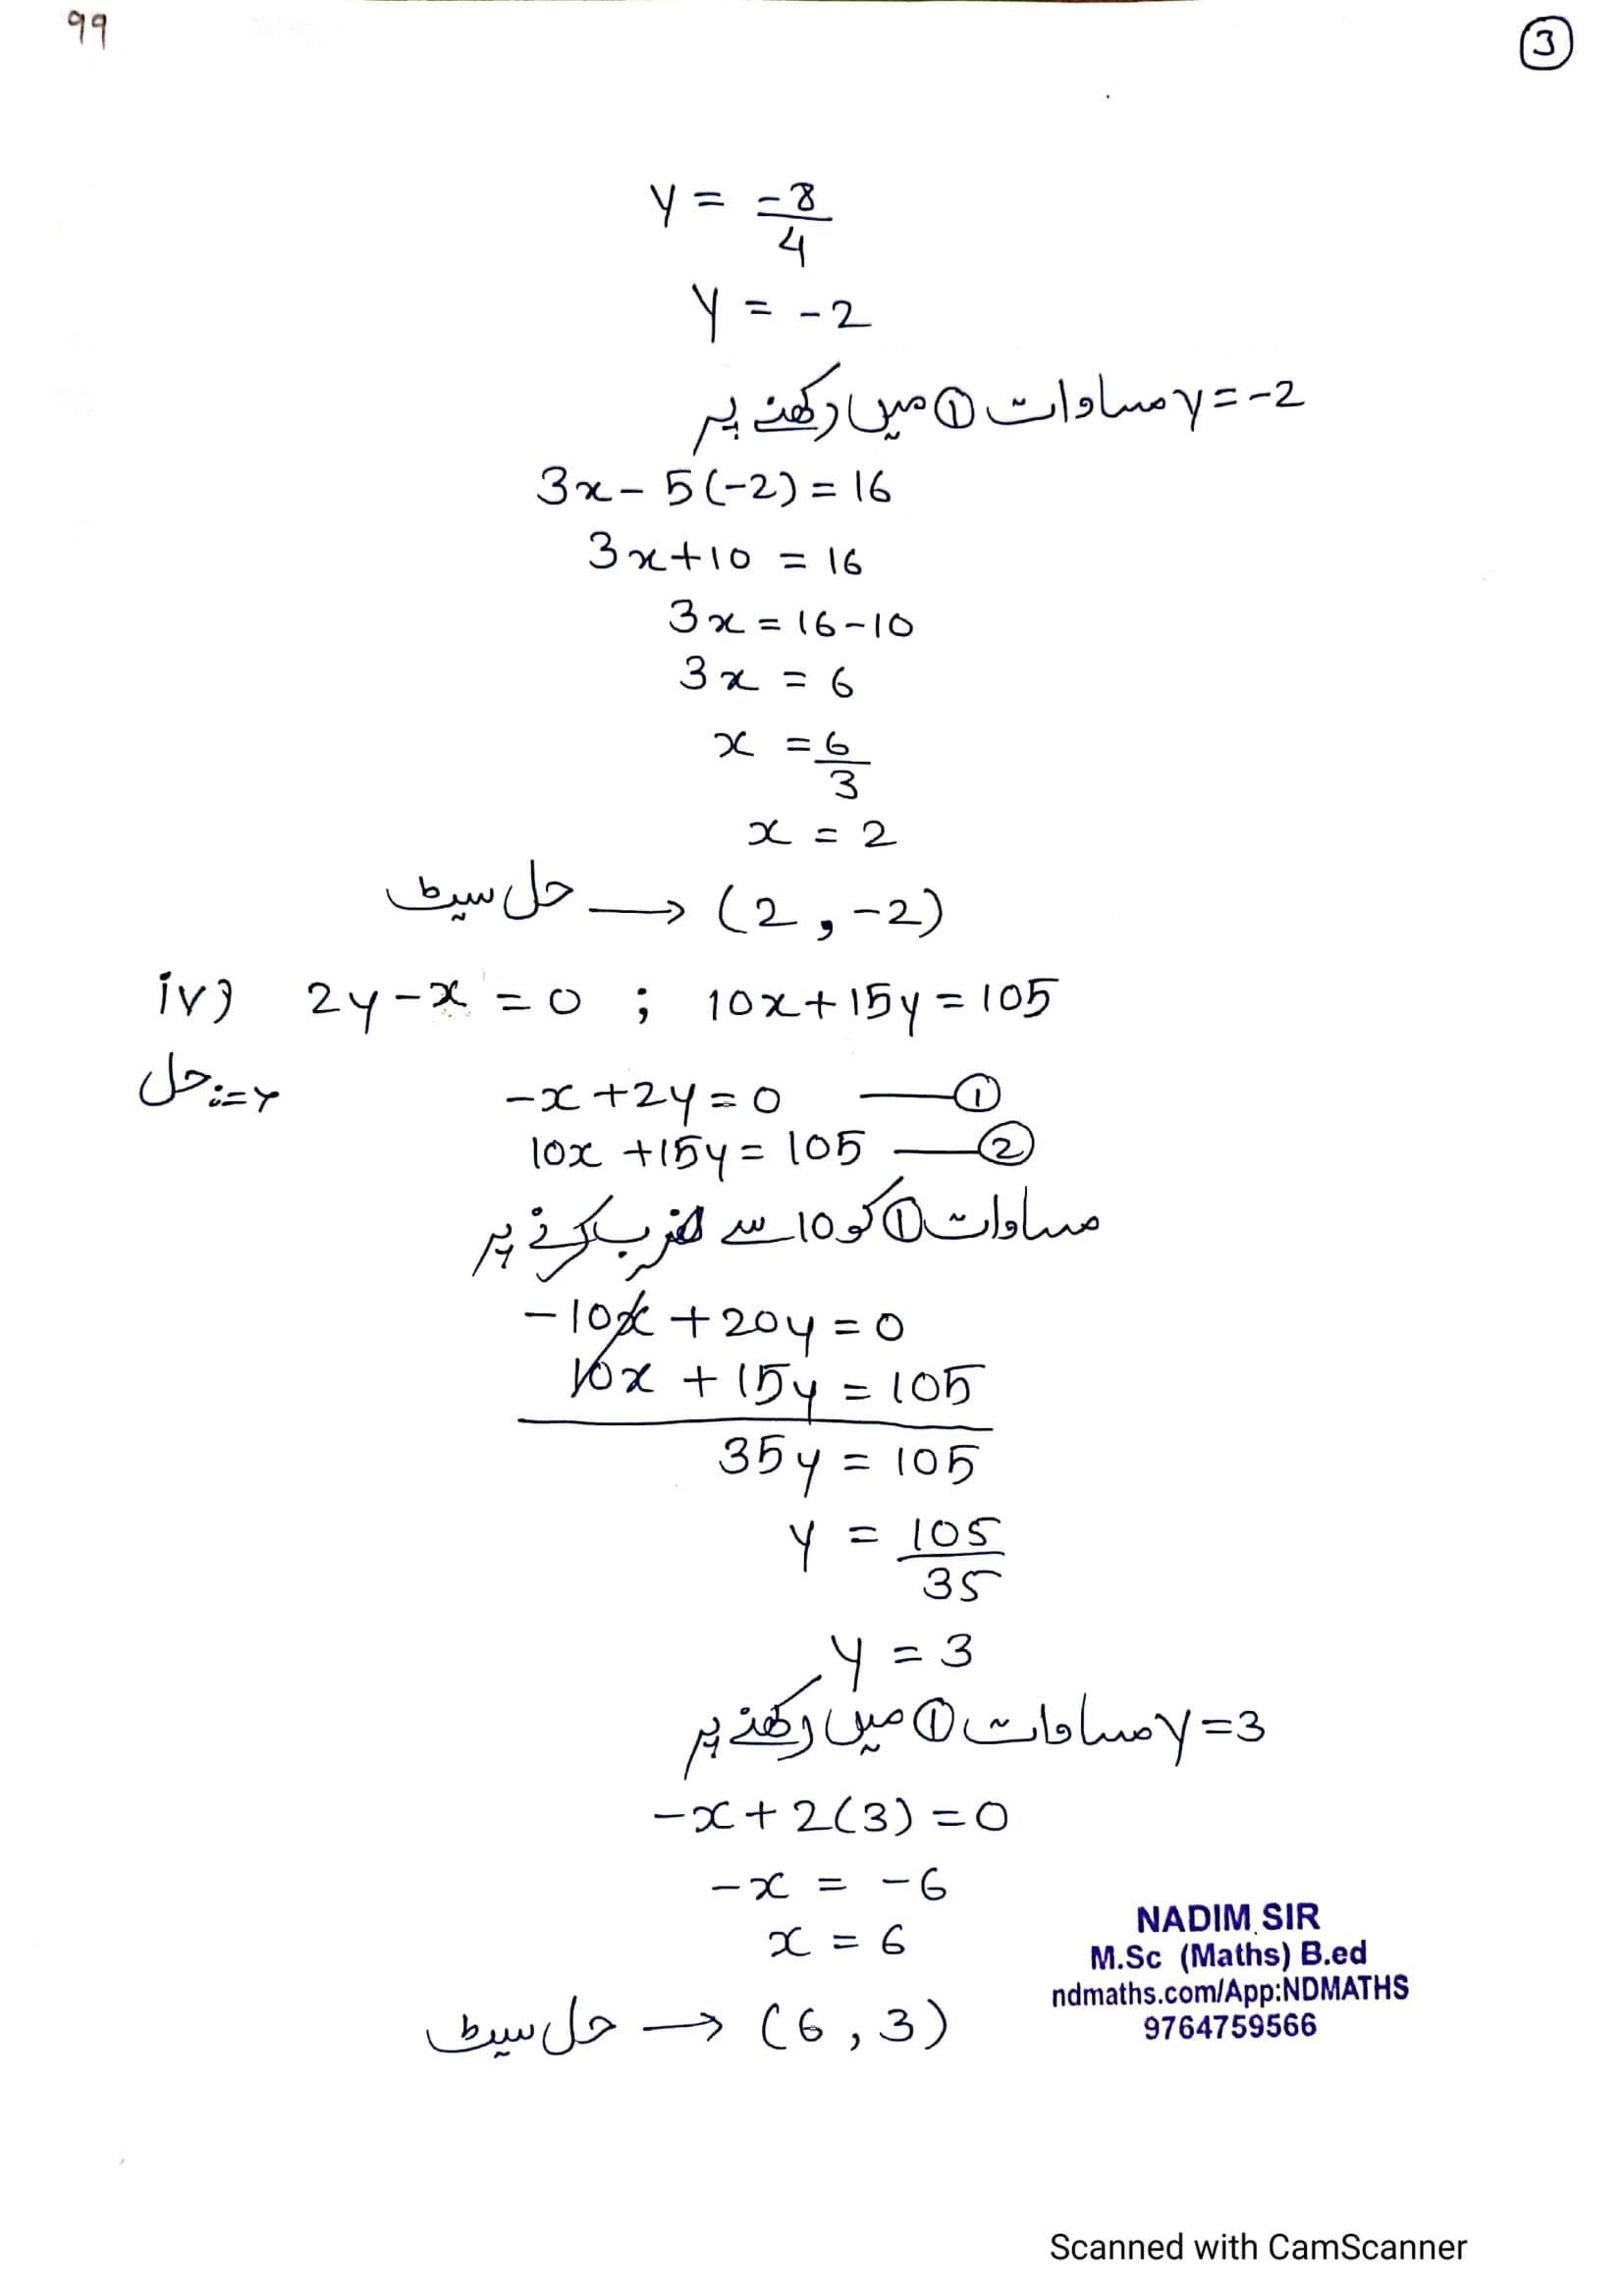 99
3
y = -8/4
y = -2
y = -2 مساوات ① میں رکھنے پر
3x - 5(-2) = 16
3x + 10 = 16
3x = 16 - 10
3x = 6
x = 6/3
x = 2
حل سیٹ → (2, -2)
iv) 2y - x = 0 ; 10x + 15y = 105
حل :=>
-x + 2y = 0 — ①
10x + 15y = 105 — ②
مساوات ① کو 10 سے ضرب کرنے پر
-10x + 20y = 0
10x + 15y = 105
35y = 105
y = 105/35
y = 3
y = 3 مساوات ① میں رکھنے پر
-x + 2(3) = 0
-x = -6
x = 6
حل سیٹ → (6, 3)
NADIM SIR
M.Sc (Maths) B.ed
ndmaths.com/App:NDMATHS
9764759566
Scanned with CamScanner